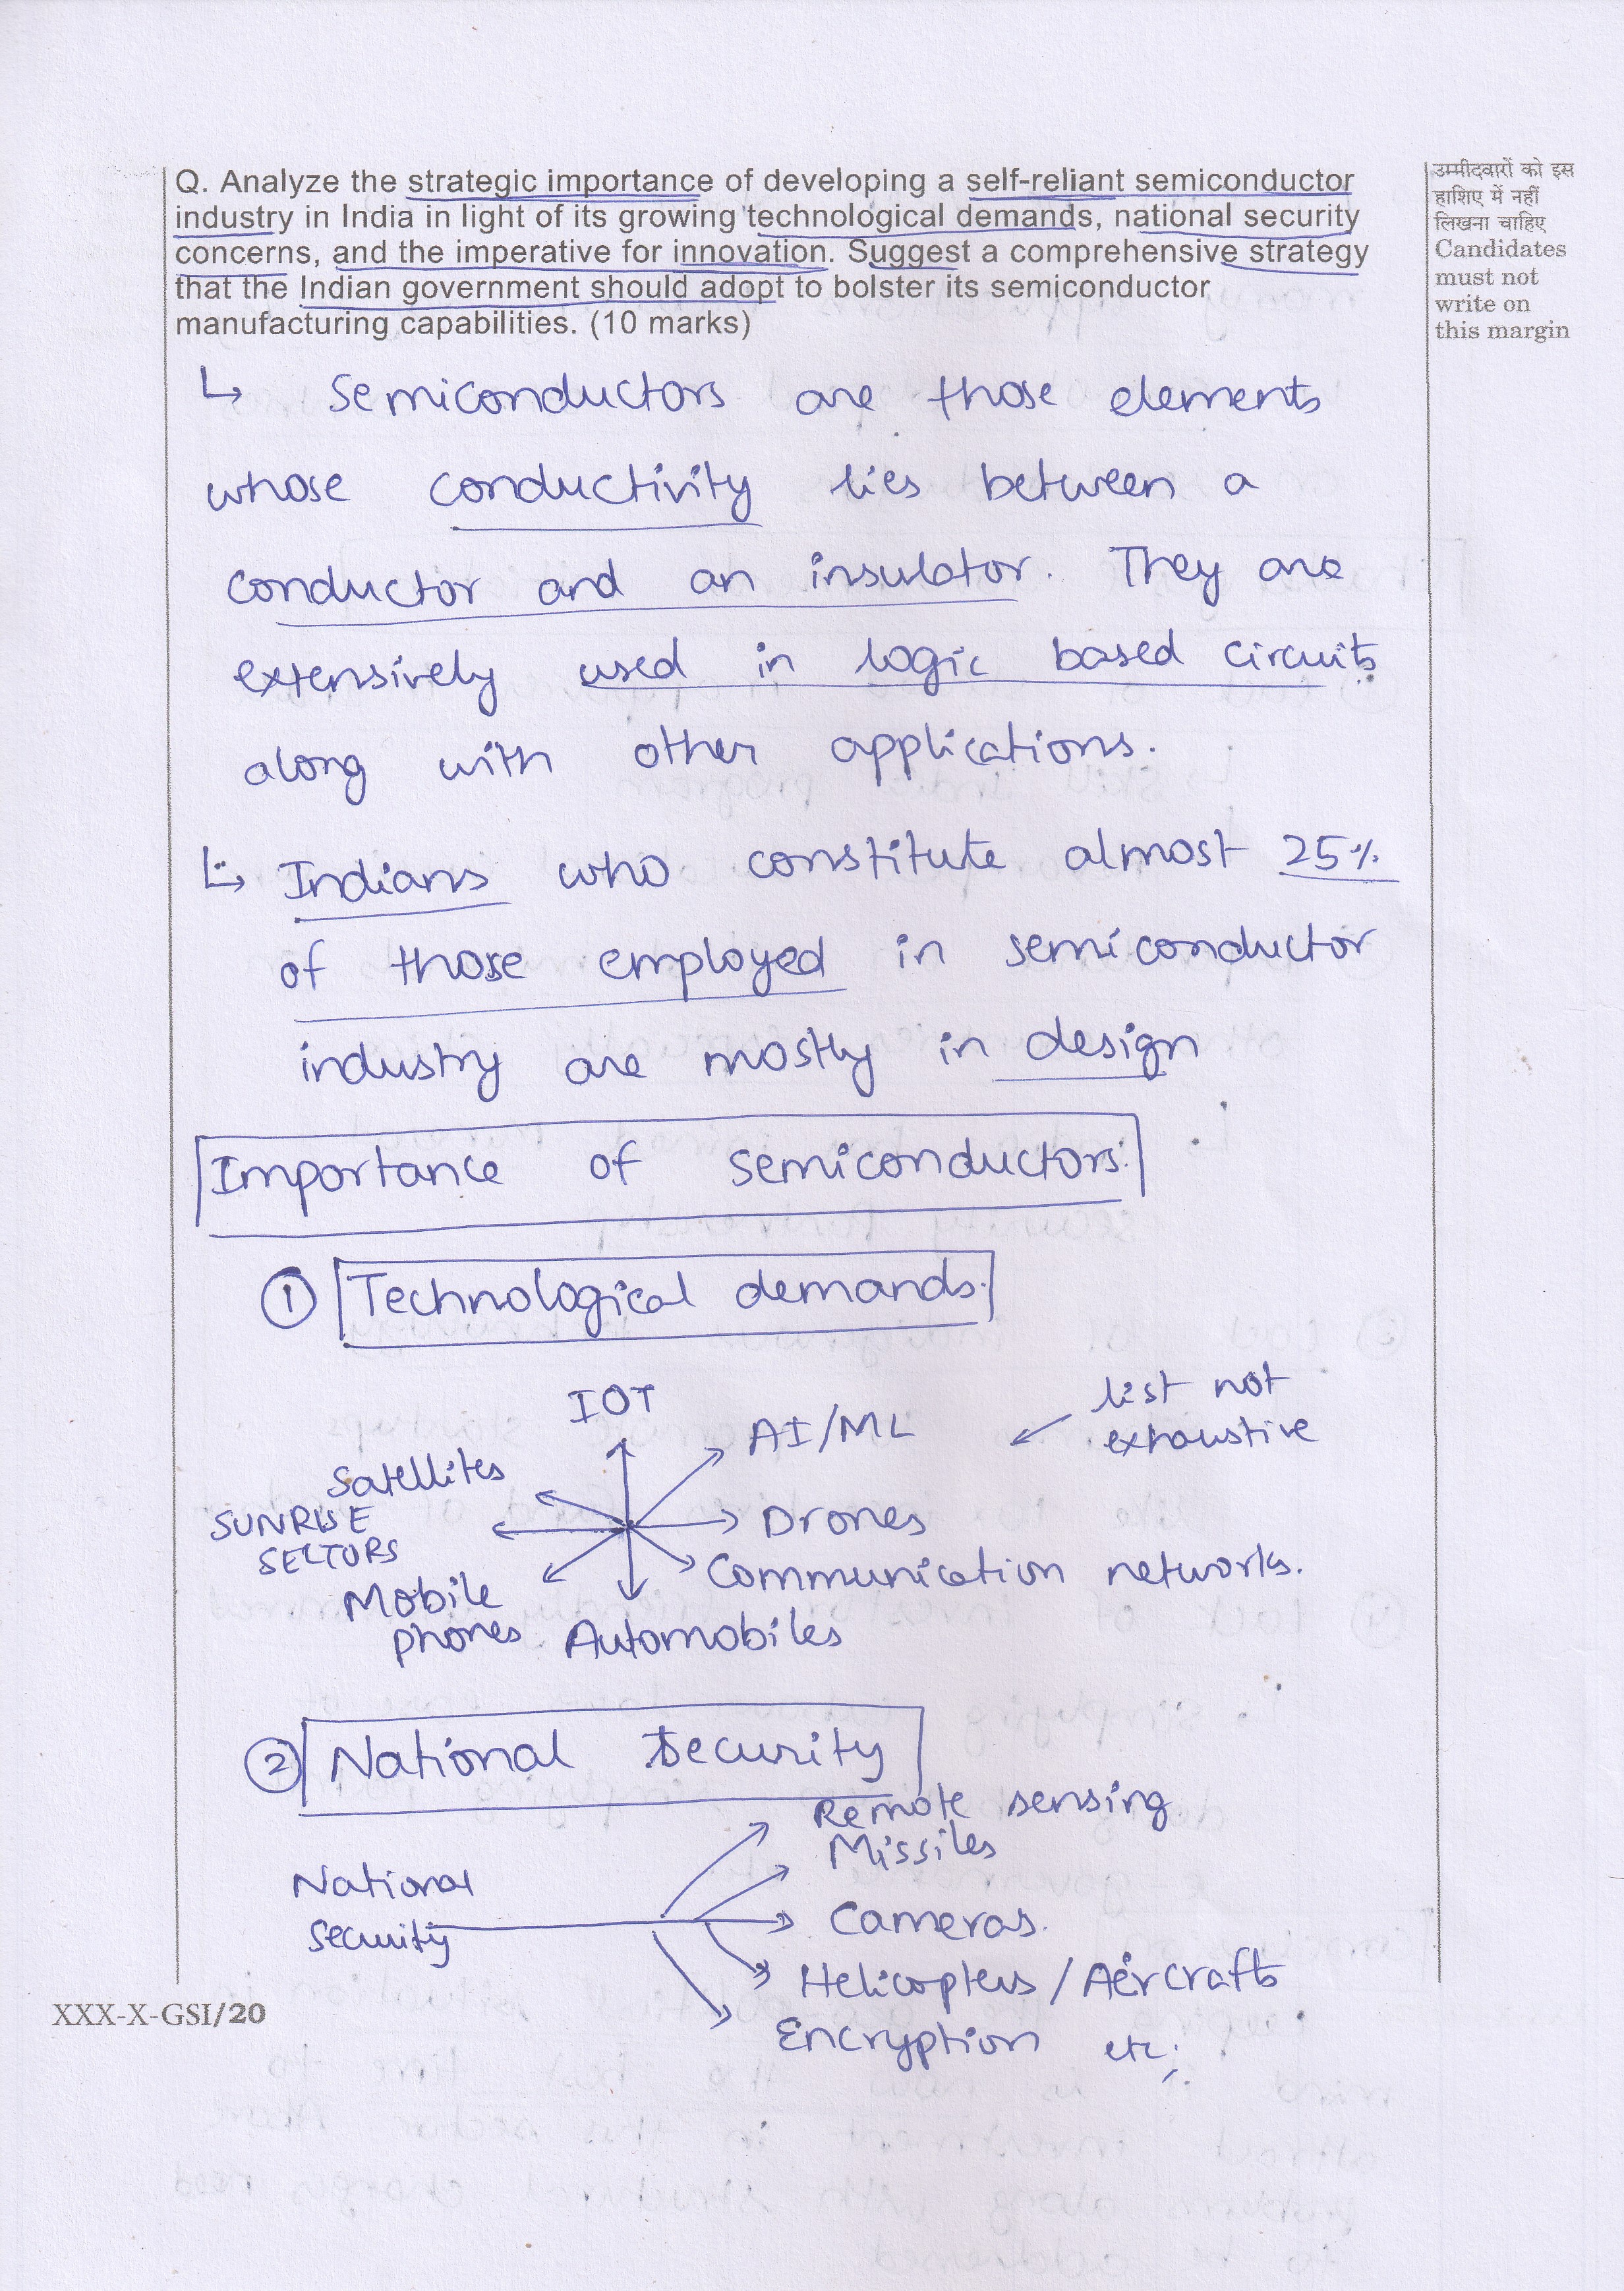 Q. Analyze the strategic importance of developing a self-reliant semiconductor
industry in India in light of its growing technological demands, national security
concerns, and the imperative for innovation. Suggest a comprehensive strategy
that the Indian government should adopt to bolster its semiconductor
manufacturing capabilities. (10 marks)
उम्मीदवारों को इस
हाशिए में नहीं
लिखना चाहिए
Candidates
must not
write on
this margin
↳ Semiconductors are those elements
whose conductivity lies between a
conductor and an insulator. They are
extensively used in logic based circuits
along with other applications.
↳ Indians who constitute almost 25%
of those employed in semiconductor
industry are mostly in design
Importance of semiconductors:
① Technological demands:
IOT
AI/ML
list not
exhaustive
Satellites
Drones
SUNRISE
SECTORS
Communication networks.
Mobile
phones
Automobiles
② National Security
National
security
Remote sensing
Missiles
Cameras.
Helicopters / Aircrafts
Encryption etc;
XXX-X-GSI/20